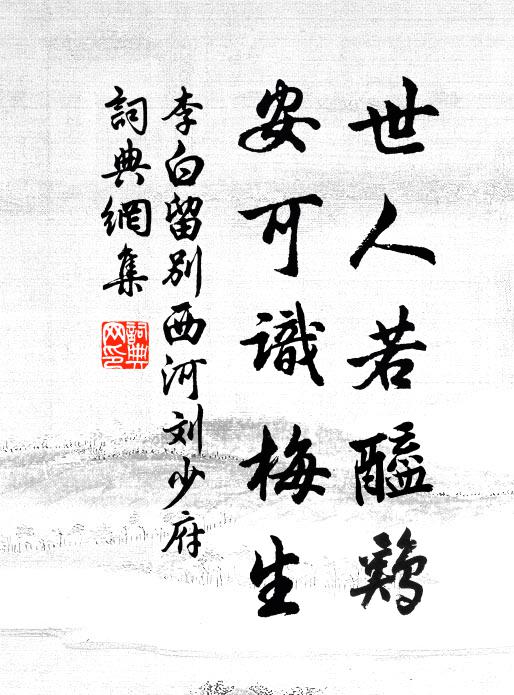 世人若醯鷄
安可識梅生
李白留别西河刘少府
詞典網集
詞典网印